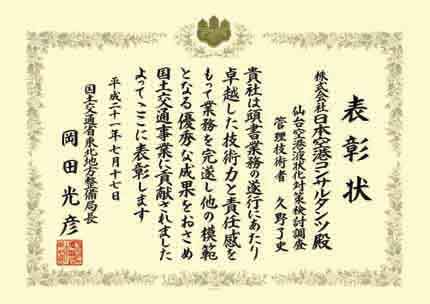 表彰状
株式会社日本空港コンサルタンツ殿
仙台空港液状化対策検討調査
管理技術者 久野了史
貴社は頭書業務の遂行にあたり
卓越した技術力と責任感を
もって業務を完遂し他の模範
となる優秀な成果をおさめ
国土交通事業に貢献されました
よってここに表彰します
平成二十一年七月十七日
国土交通省東北地方整備局長
岡田光彦